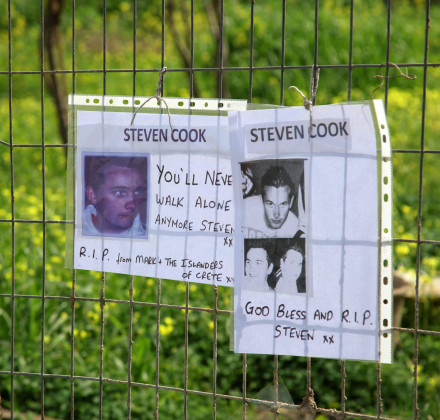 STEVEN COOK
YOU'LL NEVE
WALK ALONE
ANYMORE STEVEN
XX
R.I.P. from MARK + THE ISLANDERS
OF CRETE XX
STEVEN COOK
GOD BLESS AND R.I.P.
STEVEN XX